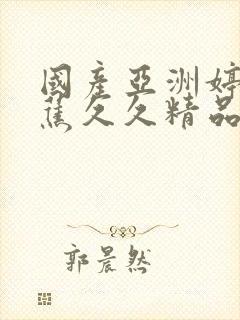 國產亞洲婷
蕉久久精品
郭晨然